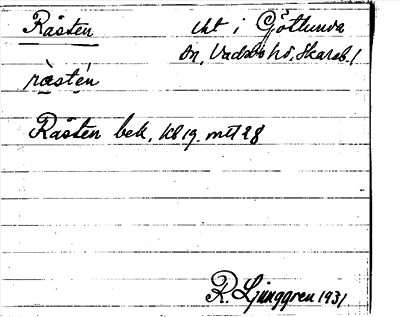 Råsten    ukt i Götlunda
sn, Vadsbo hd. Skarab. l
ràstén
Råsten bek. KB 19. mtl 28
R. Ljunggren 1931